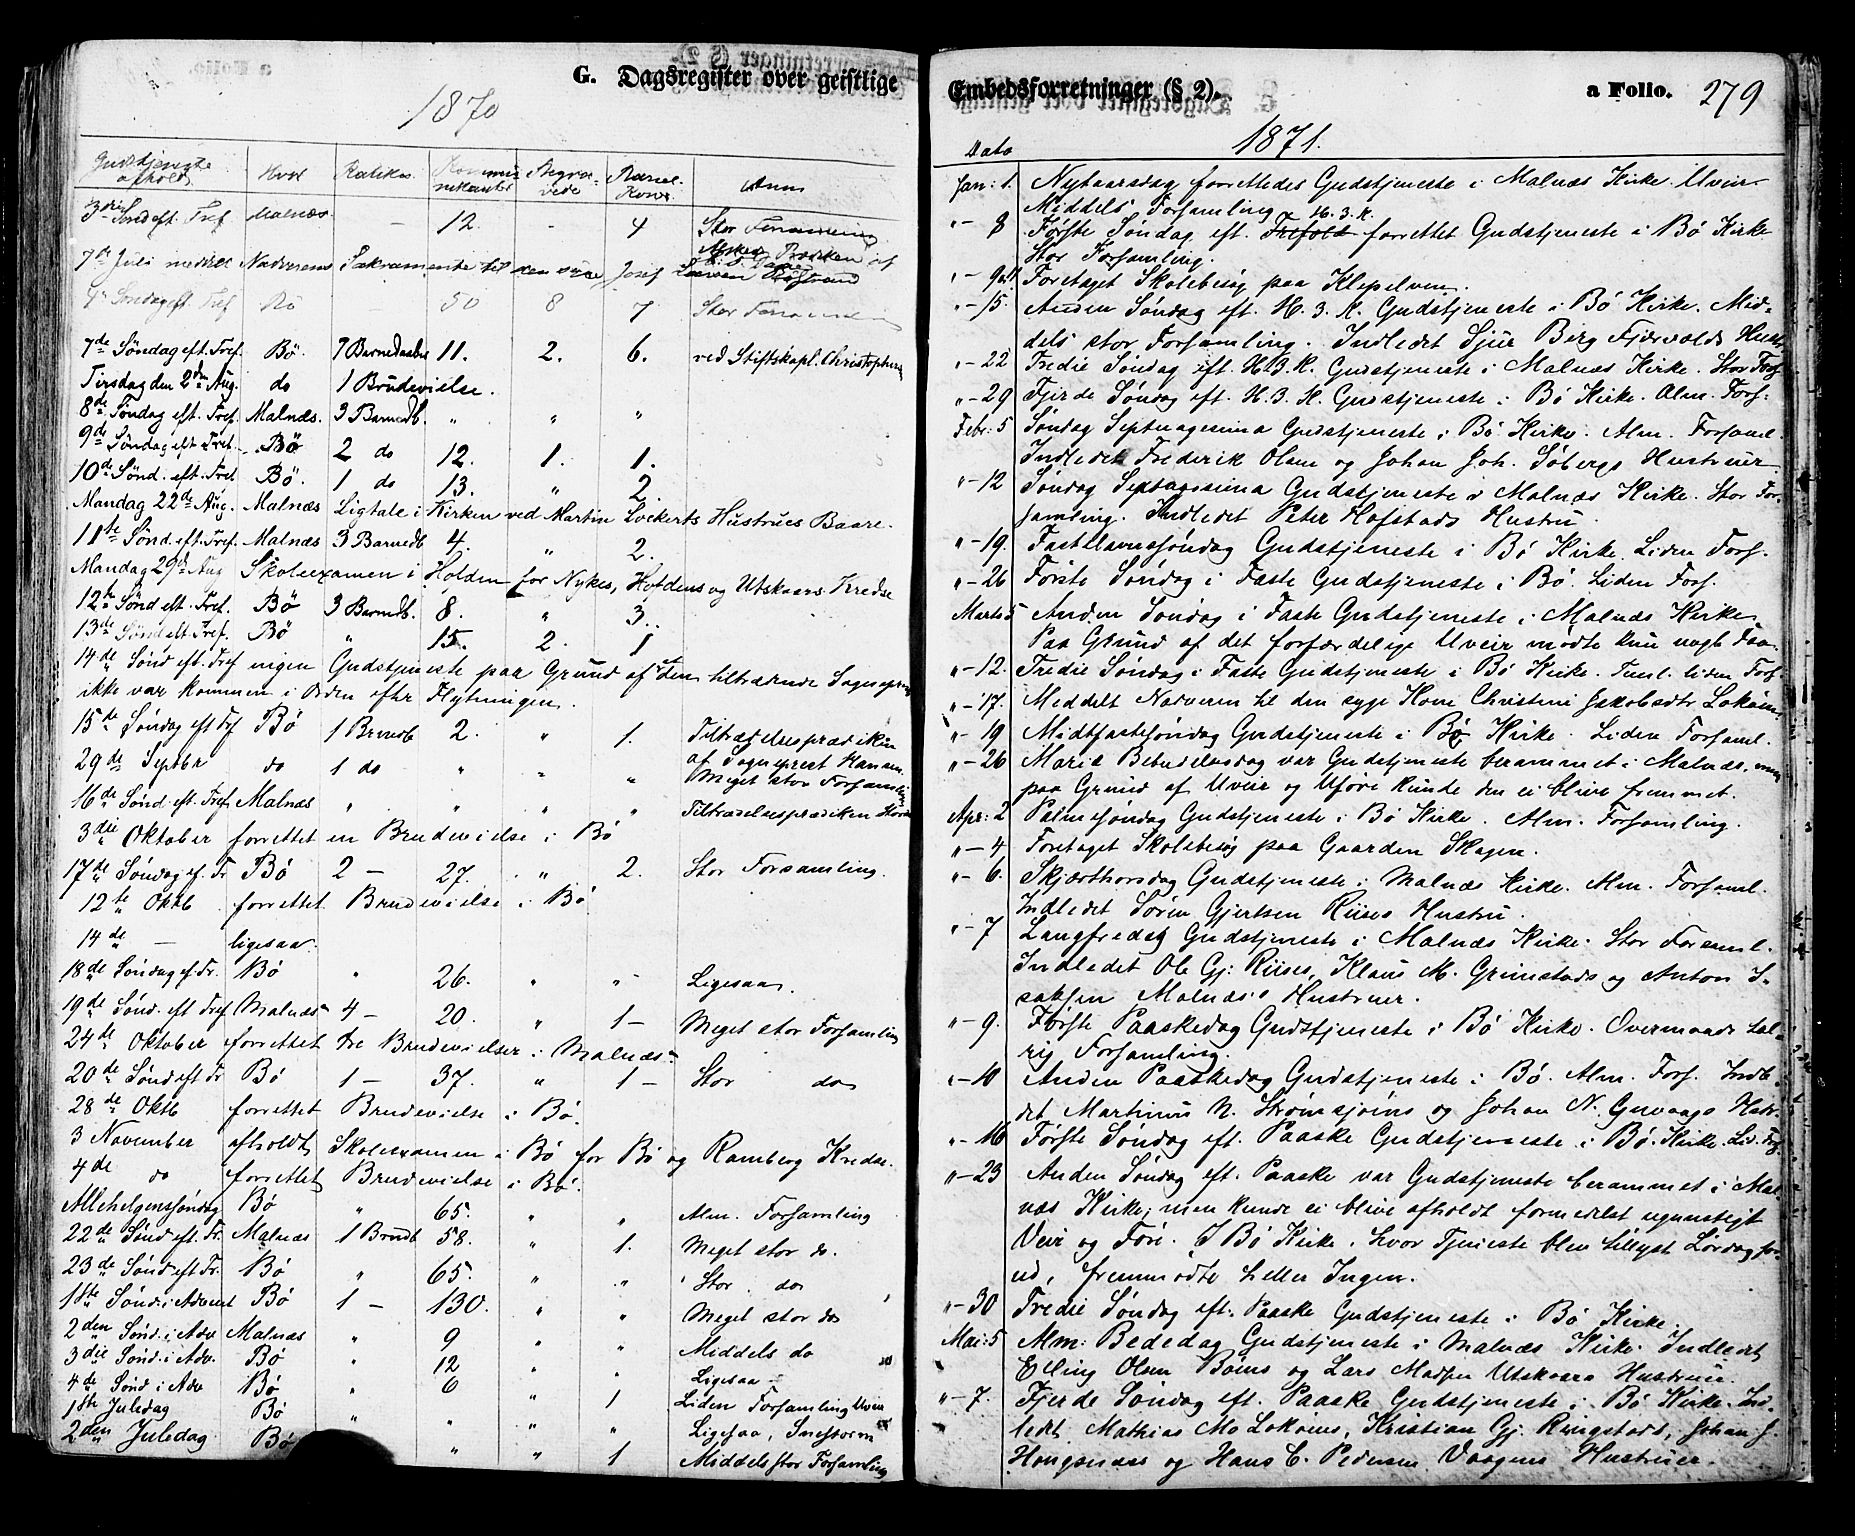 G. Dagsregister over geistlige
1870
Gudstjeneste afholdt Hvor Katikes. Kommunikanter Begravede Barsel-Koner Anm
3die Sönd eft. Tref Malnæs - 12. - 4 Stor Forsamling
7de Juli meddelt Nadverens Sakramente til den syge Josef
Søndag eft Tref Bö 50 8 7 Stor Forsamling
7de Søndag eft. Tref. Bö. 7 Barnedaaber 11. 2. 6. ved Stiftskapl. Christophersen
Tirsdag den 2den Aug. do 1 Brudevielse.
8de Søndag eft. Tref. Malnæs. 3 Barnedb. " " "
9de Søndag eft Tref. Bö 2 do 12. 1. 1.
10de Sönd. eft. Tref Bö. 1 do 13. " 2.
Mandag 22de Aug. Malnæs Ligtale i Kirken ved Martin Lockerts Hustrues Baare.
11te Sönd. eft. Tref. Malnæs 3 Barnedb 4. " 2.
Mandag 29de Aug Skoleexamen i Holden for Nykes, Hovdens og Utskaars Kredse
12te Sönd eft. Tref. Bö 3 Barnedb. 8. " 3.
13de Sönd eft. Tref. Bö " 15. 2. 1
14de Sönd eft. Tref ingen Gudstjeneste paa Grund af at den tiltrædende Sognepræst
ikke var kommen i Orden efter Flytningen.
15de Søndag eft Tref Bö 1 Barnedb 2. " 1. Tiltrædelsesprædiken
af Sogneprest Hansen.
29de Septbr do 1 do " " " Meget stor Forsamling
16de Sönd. eft. Tref. Malnæs " " " " Tiltrædelsesprædiken
3die Oktober forrettet en Brudevielse i Bö
17de Søndag ef. Tr Bö 2 - 27. " 2. Stor Forsamling.
12te Oktb forrettet Brudevielse i Bö
14de - ligesaa.
18de Søndag ef. Tr. Bö " 26. " " Ligesaa.
19de Sönd. eft Tref Malnæs 4 - 20. " 1 - Meget stor Forsamling
24de Oktober forrettet tre Brudevielser i Malnæs
20de Sönd eft Tr Bö 1 - 37. " 1 - Stor do
28de Oktb forrettet Brudevielse i Bö.
3 November afholdt Skoleexamen i Bö for Bö og Ramberg Kredse.
4de do forrettet Brudevielse i Bö.
Allehelgenssøndag Bö " 65. " " Alm. Forsamling
22de Sönd eft. Tr. Malnæs 1 Brudb 58. " 1. Meget stor do.
23de Sönd eft Tr. Bö " 65. " " Stor do
1ste Sönd. i Advent Bö 1 - 130. " " Meget stor do
2den Sönd. i Adv Malnæs " 9 " " Middels do
3die Sönd. i Adv. Bö " 12 " " Ligesaa
4de Sönd i Adv Bö " 6 " 1 Liden Forsamling Uveir
1ste Juledag Bö " " " " Ligesaa, Snestorm
2den Juledag Bö " " 1 Middelsstor Forsamling
Embedsforretninger (§ 2).
a Folio. 279
1871.
Dato
Jan: 1. Nytaarsdag forrettedes Gudstjeneste i Malnæs Kirke. Uveir
Middels Forsamling
"- 8 Første Søndag eft. Trefold H. 3. K. forrettet Gudstjeneste i Bö Kirke
Stor Forsamling.
"- 9 Foretaget Skolebesøg paa Klepelven.
"- 15. Anden Søndag eft. H. 3. K. Gudstjeneste i Bö Kirke. Mid-
dels stor Forsamling. Indledet Sjur Berg Fjærvolds Hust.
"- 22 Tredie Søndag eft. H. 3. K. Gudstjeneste i Malnæs Kirke. Stor Fors
"- 29 Fjerde Søndag eft. H. 3. K. Gudstjeneste i Bö Kirke. Alm. Fors.
Febr: 5 Søndag Septuagesima Gudstjeneste i Bö Kirke. Alm. Forsaml.
Indledet Frederik Olsen og Johan Joh. Søbergs Hustruer
"- 12 Søndag Sexagesima Gudstjeneste i Malnæs Kirke. Stor For-
samling. Indledet Peter Hofstads Hustru.
"- 19. Fastelavnssøndag Gudstjeneste i Bö Kirke. Liden Fors.
"- 26 Første Søndag i Faste Gudstjeneste i Bö. Liden Fors.
Marts 5 Anden Søndag i Faste Gudstjeneste i Malnæs Kirke.
Paa Grund af det forfærdelige Uveir mødte kun nogle Faa.
"- 12. Tredie Søndag i Faste Gudstjeneste i Bö Kirke. Teml. liden Fors.
"- 17. Meddelt Nadveren til den syge Kone Christine Jakobsdtr Lokøen.
"- 19 Midtfastesøndag Gudstjeneste i Bö Kirke. Liden Forsaml.
"- 26 Mariæ Bebudelsesdag var Gudstjeneste berammet i Malnæs, men
paa Grund af Uveir og Uföre kunde den ei blive fremmet.
Apr: 2 Palmesøndag Gudstjeneste i Bö Kirke. Alm. Forsamling.
"- 4 Foretaget Skolebesøg paa Gaarden Skagen.
"- 6. Skjærthorsdag Gudstjeneste i Malnæs Kirke. Alm. Forsaml.
Indledet Søren Gjertsen Riises Hustru.
"- 7 Langfredag Gudstjeneste i Malnæs Kirke. Stor Forsaml.
Indledet Ole Gj: Riises, Klaus M. Grimstads og Anton I-
saksen Malnæs's Hustruer.
"- 9. Første Paaskedag Gudstjeneste i Bö Kirke. Overmaade tal-
rig Forsamling.
"- 10 Anden Paaskedag Gudstjeneste i Bö. Alm. Fors. Indle-
det Martinus N. Strømsjøins og Johan N. Guvaags Hustr.
"- 16 Første Søndag eft. Paaske Gudstjeneste i Bö Kirke. Lid. Fors.
"- 23 Anden Søndag eft. Paaske var Gudstjeneste berammet i Mal-
næs Kirke, men kunde ei blive afholdt formedelst ugunstigt
Veir og Före. I Bö Kirke, hvor Tjeneste blev tillyst Lørdag for-
ud, fremmødte heller Ingen.
"- 30 Tredie Søndag eft. Paaske Gudstjeneste i Bö Kirke.
Mai: 5 Alm: Bededag Gudstjeneste i Malnæs Kirke. Indledet
Elling Olsen Boens og Lars Madsen Utskaars Hustruer.
"- 7. Fjerde Søndag eft. Paaske Gudstjeneste i Bö Kirke. Ind-
ledt Mathias Mo Lokøens, Kristian Gj. Ringstads, Johan J.
Hongsenæs og Hans C. Pedersen Vaagens Hustruer.